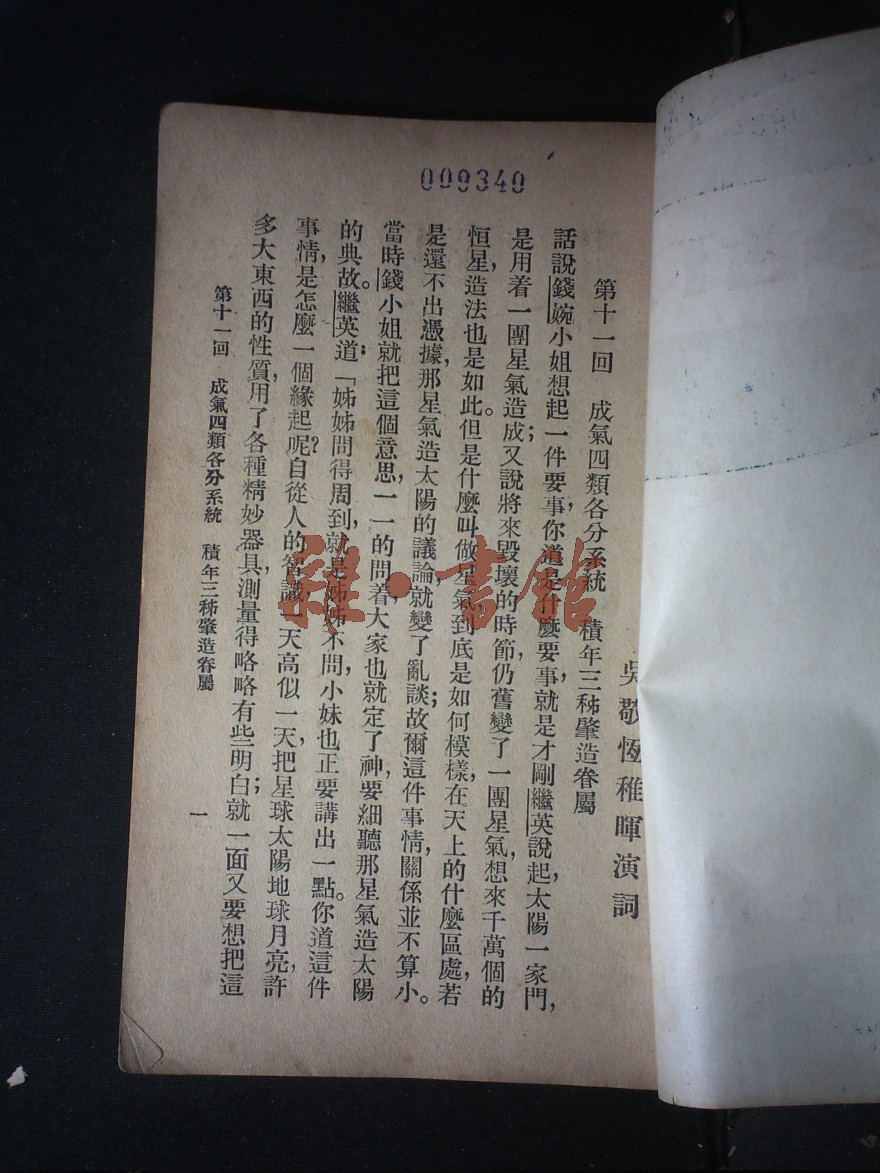 009340
吳敬恆稚暉演詞
第十一回 成氣四類各分系統 積年三秭肇造眷屬
話說錢婉小姐想起一件要事，你道是什麼要事，就是才剛繼英說起，太陽一家門，
是用着一團星氣造成；又說將來毀壞的時節，仍舊變了一團星氣，想來千萬個的
恒星，造法也是如此。但是什麼叫做星氣，到底是如何模樣，在天上的什麼區處，若
是還不出憑據，那星氣造太陽的議論，就變了亂談；故爾這件事情，關係並不算小。
當時錢小姐就把這個意思，一一的問着大家，也就定了神，要細聽那星氣造太陽
的典故。繼英道：「姊姊問得周到，就是姊姊不問，小妹也正要講出一點。你道這件
事情，是怎麼一個緣起呢？自從人的智識一天高似一天，把星球太陽地球月亮，許
多大東西的性質，用了各種精妙器具，測量得略略有些明白；就一面又要想把這
第十一回 成氣四類各分系統 積年三秭肇造眷屬
一
雜·書館